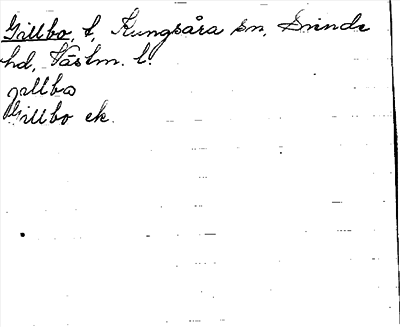 Gillbo, t, Kungsåra sn, Sninds
hd, Västm. l.
jallbo
Gillbo ek.